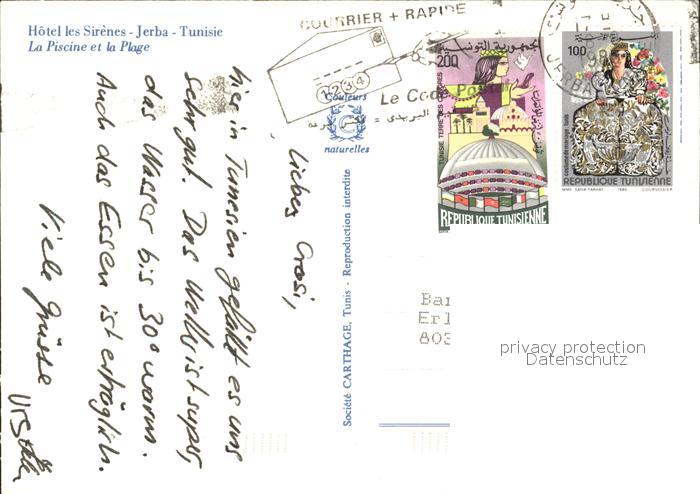 Hôtel les Sirènes - Jerba - Tunisie
La Piscine et la Plage
COURRIER + RAPIDE
1234
Le Code Postal
البريدي
Couleurs
C
naturelles
Société CARTHAGE, Tunis - Reproduction interdite
hier in Tunesien gefällt es uns
sehr gut. Das Wetter ist super,
das Wasser bis 30° warm.
Auch das Essen ist erträglich.
Viele Grüsse
Liebes
الجمهورية التونسية
200
TUNISIE TERRE DES CONGRES
REPUBLIQUE TUNISIENNE
100
costume de mariage, tunis
REPUBLIQUE TUNISIENNE
1986
JERBA
Bar
Erl
803
privacy protection
Datenschutz